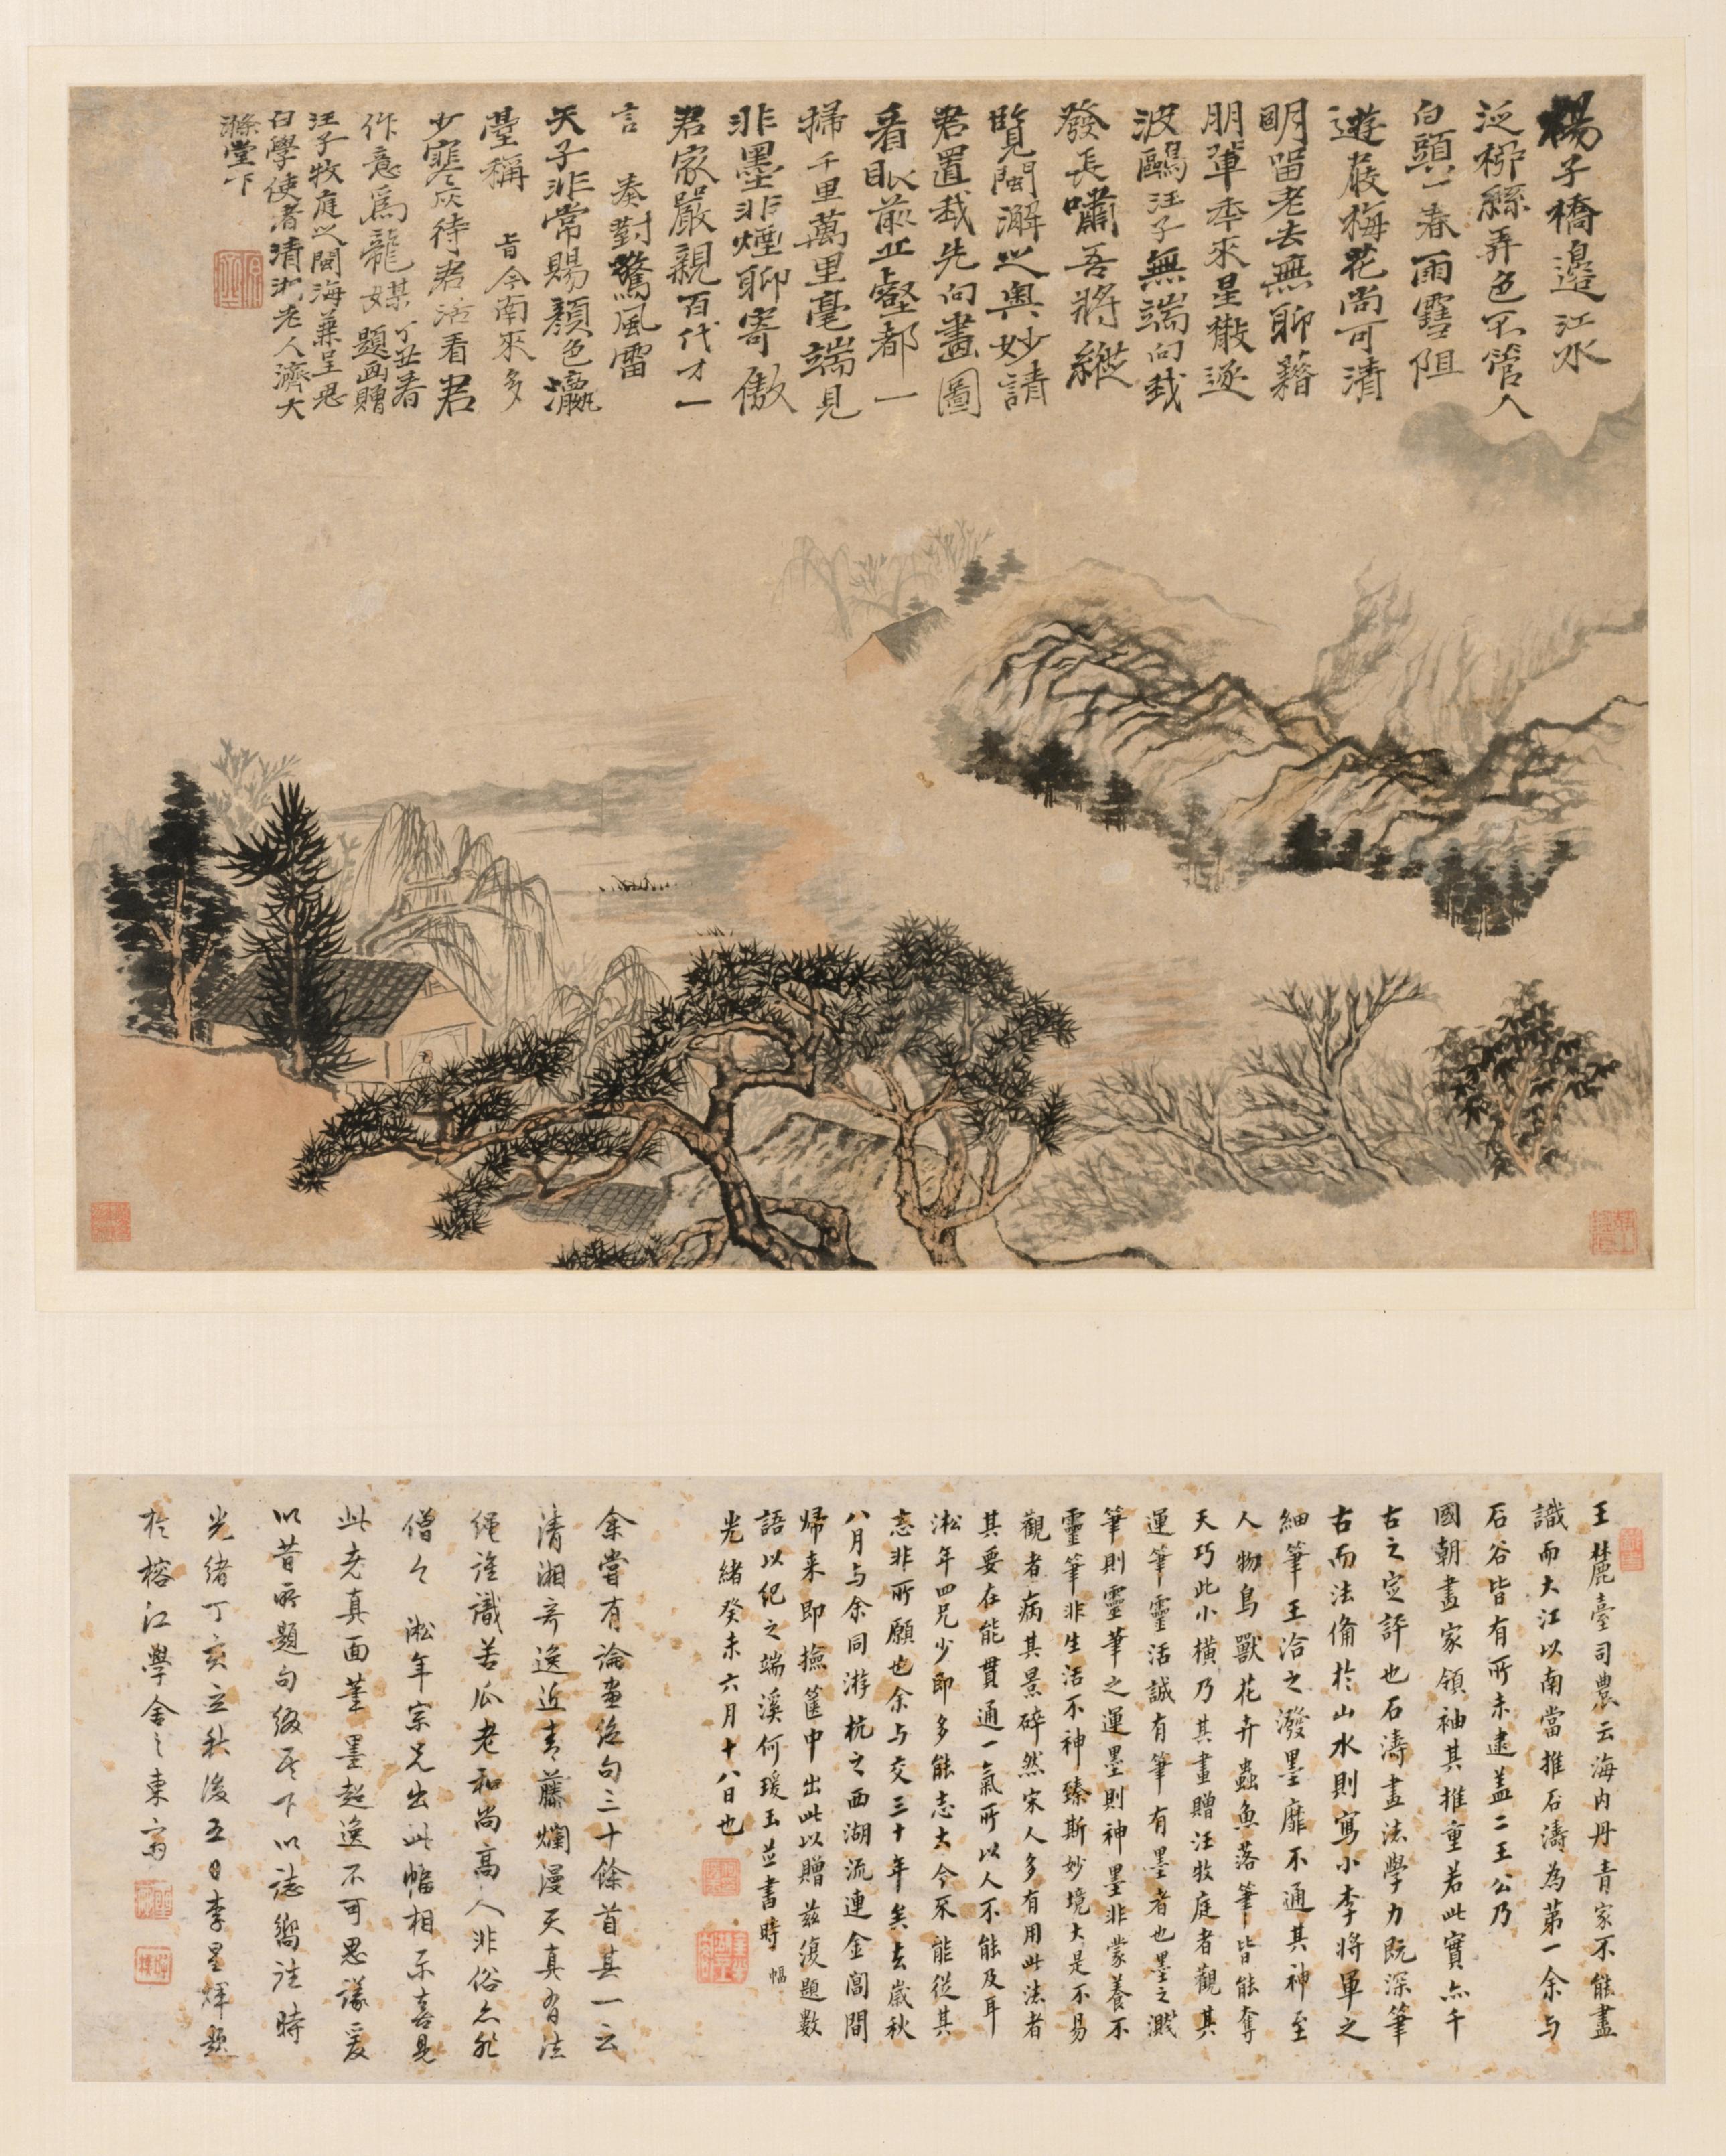 楊子橋邊江水
泛柳絲弄色不管人
白頭一春雨雪阻
遊屐梅花尚可清
明留老去無聊藉
朋輩年來星散逐
波鷗汪子無端向我
發長嘯吾將縱
覽閩澥之奧妙請
君置我先向畫圖
看眼前丘壑都一
掃千里萬里毫端見
非墨非煙聊寄傲
君家嚴親百代才一
言奏對驚風雷
天子非常賜顏色瀛
臺稱旨今南來多
少寒灰待君活看君
作意為龍媒丁丑春
題畫贈
汪子牧庭之閩海兼呈思
白學使者清湘老人濟大
滌堂下
王麓臺司農云海內丹青家不能盡
識而大江以南當推石濤為第一余與
石谷皆有所未逮蓋二王公乃
國朝畫家領袖其推重若此實亦千
古之定評也石濤畫法學力既深筆
古而法備於山水則寫小李將軍之
細筆王洽之潑墨靡不通其神至
人物鳥獸花卉蟲魚落筆皆能奪
天巧此小橫乃其畫贈汪牧庭者觀其
運筆靈活誠有筆有墨者也墨之濺
筆則靈筆之運墨則神墨非蒙養不
靈筆非生活不神臻斯妙境大是不易
觀者病其景碎然宋人多有用此法者
其要在能貫通一氣所以人不能及耳
淞年四兄少即多能志大今來能從其
志非所願也余與交三十年矣去歲秋
八月與余同游杭之西湖流連金閶間
歸來即撿篋中出此以贈茲復題數
語以紀之端溪何瑗玉並書時
幅
光緒癸未六月十八日也
余嘗有論畫絕句三十餘首其一云
清湘奇逸近青藤爛漫天真有法
繩誰識苦瓜老和尚高人非俗亦非
僧今淞年宗兄出此幅相示喜見
此老真面筆墨超逸不可思議爰
以昔所題句綴於下以誌嚮往時
光緒丁亥立秋後五日李星輝題
於榕江學舍之東齋